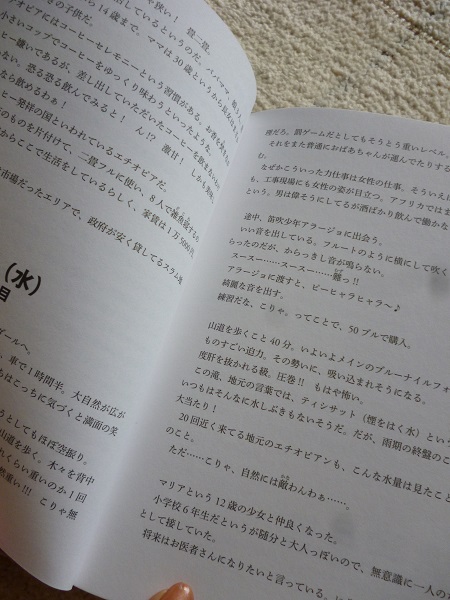 や狭い！　畳二畳。
しているというのだ。パパママ、
ら14歳まで。ママは30歳というから
さの子供だ。
オピアにはコーヒーセレモニーという習慣がある。お香を
小さいコップでコーヒーをゆっくり味わうといったような。
ヒー嫌いであるが、差し出していただいたコーヒーを飲まない
ない。恐る恐る飲んでみると！　ん!?　激甘！　しかも
なら飲めるわぁ！
ヒー発祥の国といわれているエチオピアだ。
のものを片付けて、二畳フルに使い、8人で雑魚寝する。
からここで生活をしているらしく、家賃は1万5000円。
市場だったエリアで、政府が安く貸してるスラム
（水）
目
ールへ。
、車で1時間半。大自然が広が
ちはこっちに気づくと満面の笑
うとしてもほぼ空振り。
山道を歩く。木々を背中
れくらい重いのか1回
然重い!!!　こりゃ無
理だろ。罰ゲームだとしてもそうとう重いレベル。
それをまた普通におばあちゃんが運んでたりす
む。
なぜかこういった力仕事は女性の仕事。そういえ
も、工事現場にも女性の姿が目立つ。アフリカではま
という。男は偉そうにしてるが酒ばかり飲んで働かな
途中、笛吹少年アラージョに出会う。
いい音を出している。フルートのように横にして吹く
らったのだが、からっきし音が鳴らない。
スースー……スースー……難っ!!
アラージョに渡すと、ピーヒャラヒャラ〜♪
綺麗な音を出す。
練習だな、こりゃ。ってことで、50ブルで購入。
山道を歩くこと40分。いよいよメインのブルーナイルフォ
ものすごい迫力。その勢いに、吸い込まれそうになる。
度肝を抜かれる級。圧巻!!　もはや怖い。
この滝、地元の言葉では、ティシサット（煙をはく水）とい
いつもはそんなに水しぶきもないそうだ。だが、雨期の終盤のこ
大当たり！
20回近く来てる地元のエチオピアンも、こんな水量は見たこと
のこと。
ただ……こりゃ、自然には敵わんわぁ……。
マリアという12歳の少女と仲良くなった。
小学校6年生だというが随分と大人っぽいので、無意識に一人の
として接していた。
将来はお医者さんになりたいと言っている。